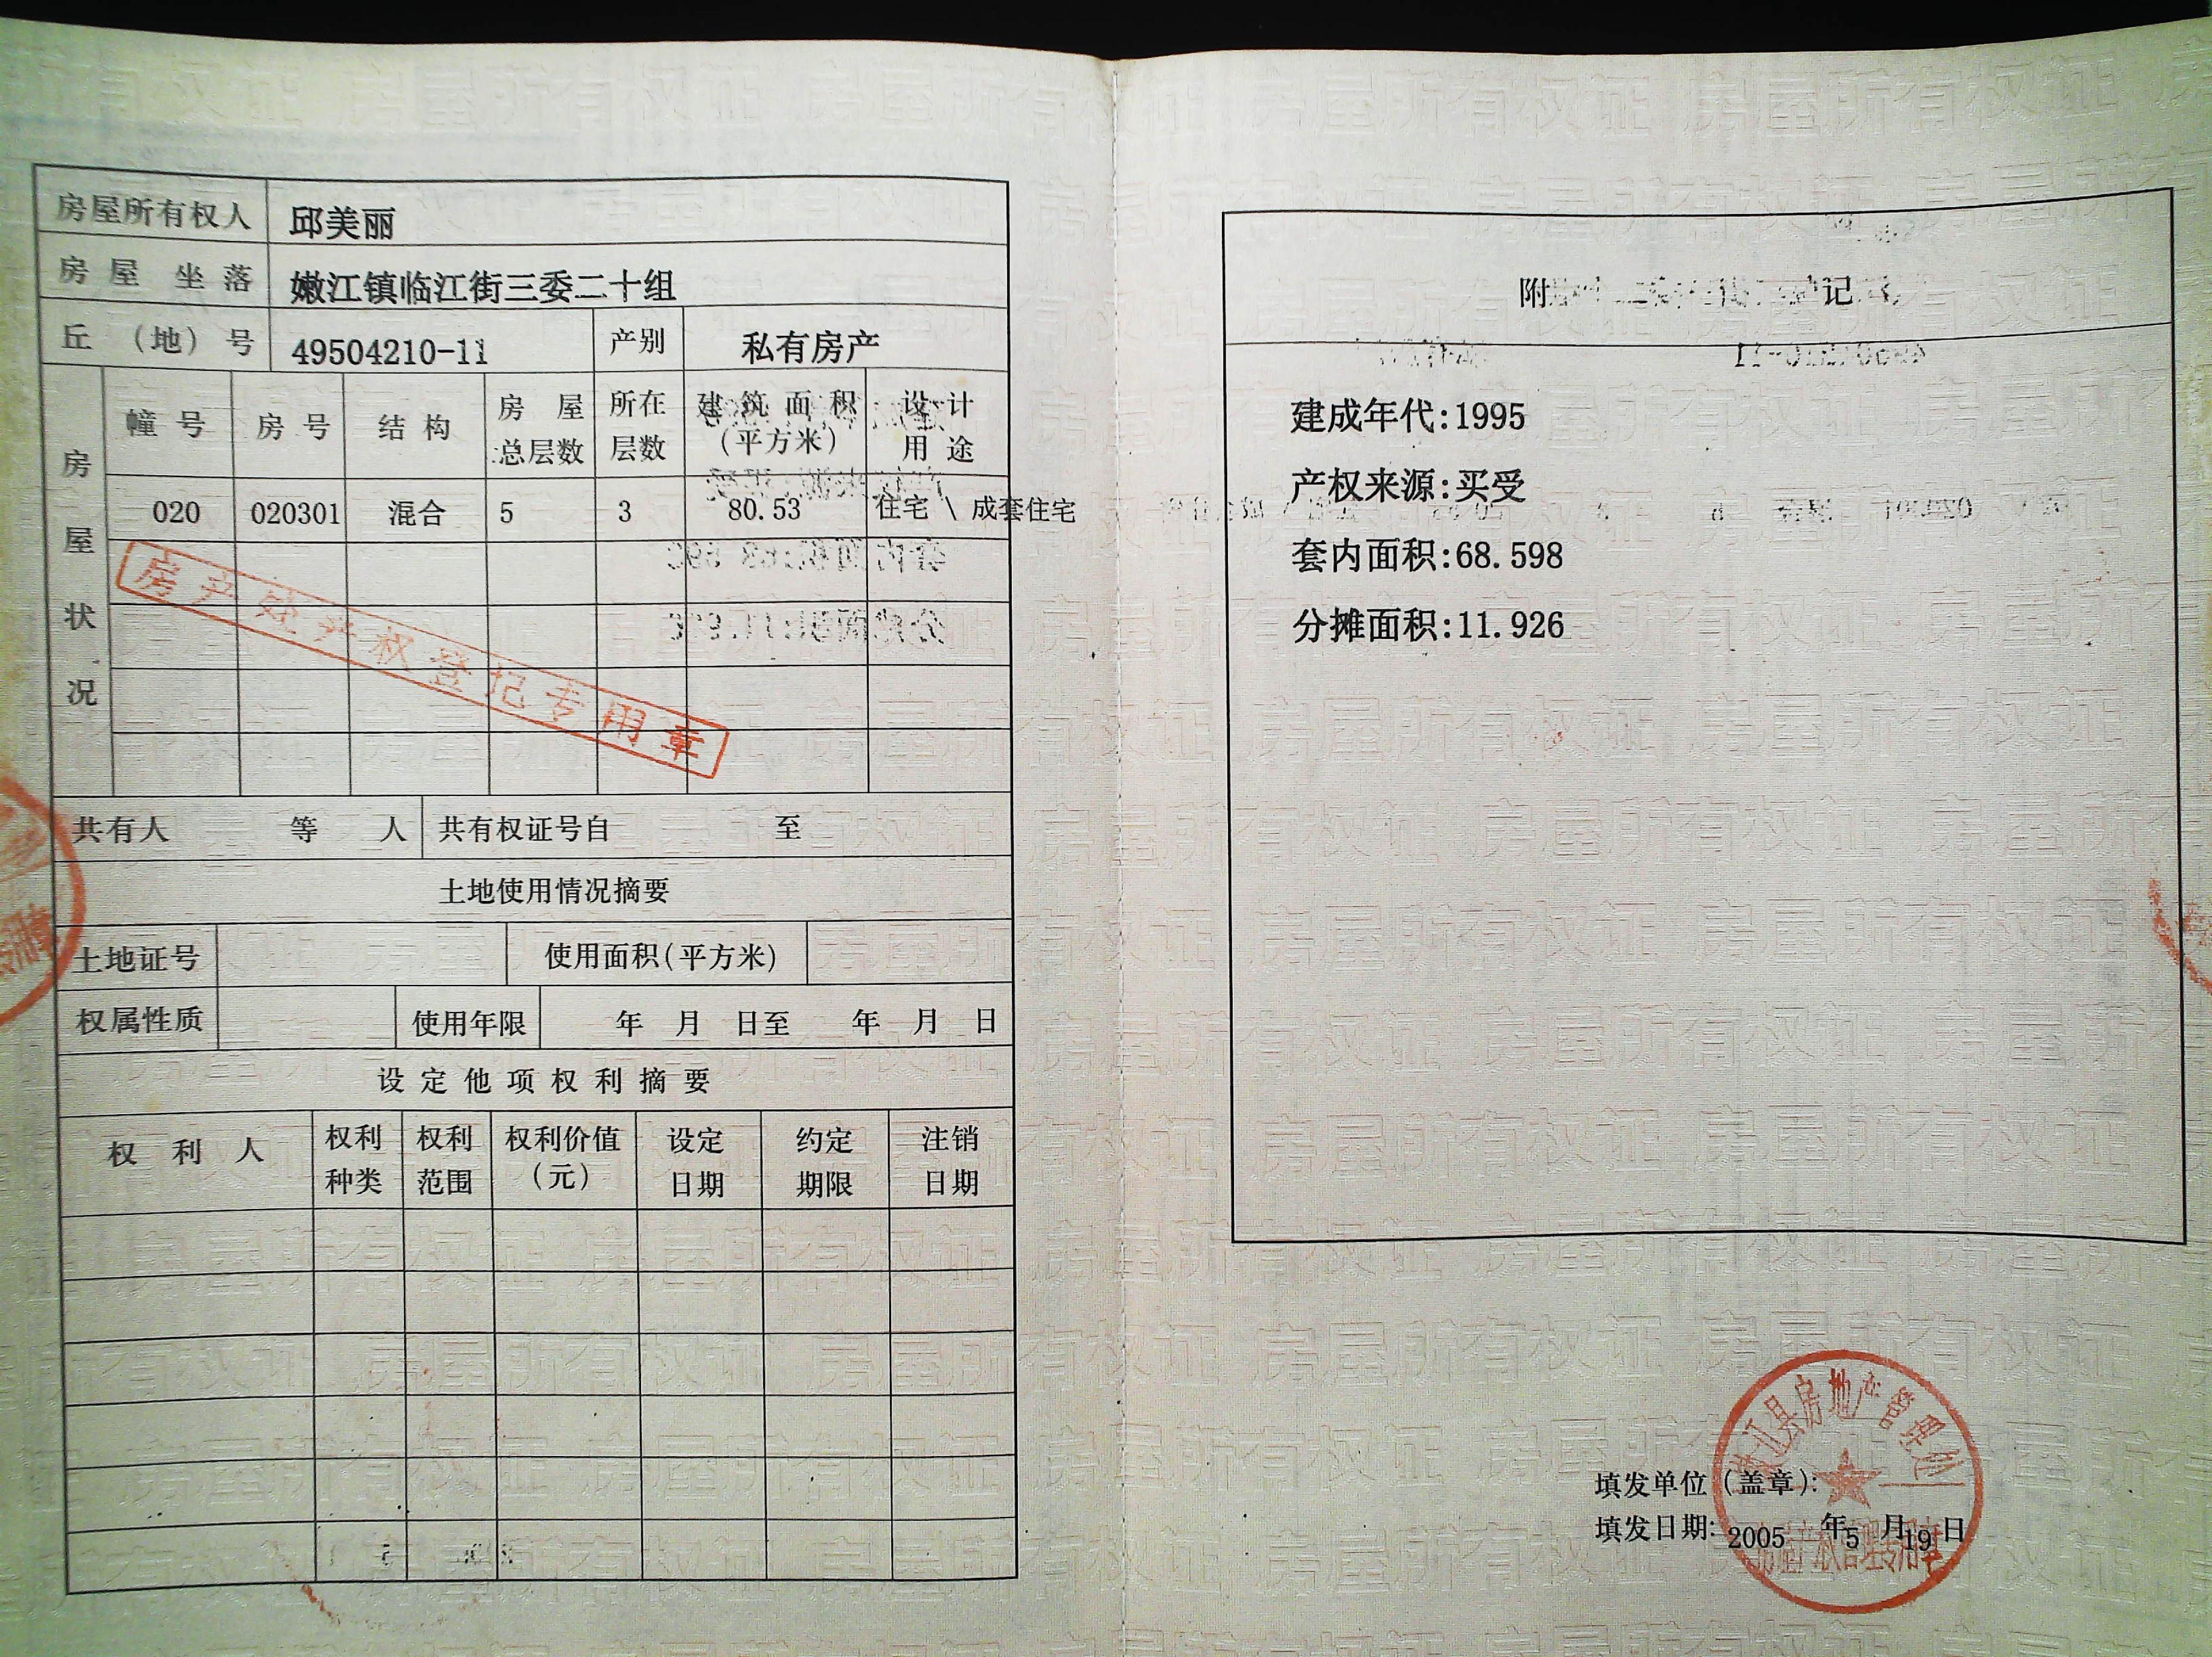 房屋所有权人 邱美丽
房屋坐落 嫩江镇临江街三委二十组
丘（地）号 49504210-11 产别 私有房产
房屋状况
幢号 房号 结构 房屋总层数 所在层数 建筑面积（平方米） 设计用途
020 020301 混合 5 3 80.53 住宅 \ 成套住宅
房产处产权登记专用章
共有人 等 人 共有权证号自 至
土地使用情况摘要
土地证号 使用面积(平方米)
权属性质 使用年限 年 月 日至 年 月 日
设定他项权利摘要
权利人 权利种类 权利范围 权利价值（元） 设定日期 约定期限 注销日期
附 记
建成年代:1995
产权来源:买受
套内面积:68.598
分摊面积:11.926
嫩江县房地产管理处
填发单位（盖章）:
填发日期: 2005 年 5 月 19 日
房屋产权管理专用章